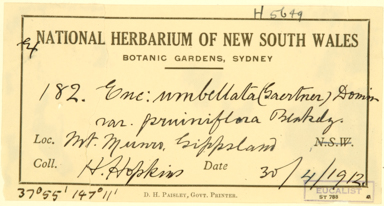 H 5649
Ex
NATIONAL HERBARIUM OF NEW SOUTH WALES
BOTANIC GARDENS, SYDNEY
182. Euc: umbellata (Gaertner) Domin
var. pruiniflora Blakely
Loc. Mt. Munro, Gippsland N.S.W.
Coll. H. Hopkins Date 30/4/1912
37°55' 147°11'
D. H. PAISLEY, GOVT. PRINTER.
EUCALIST